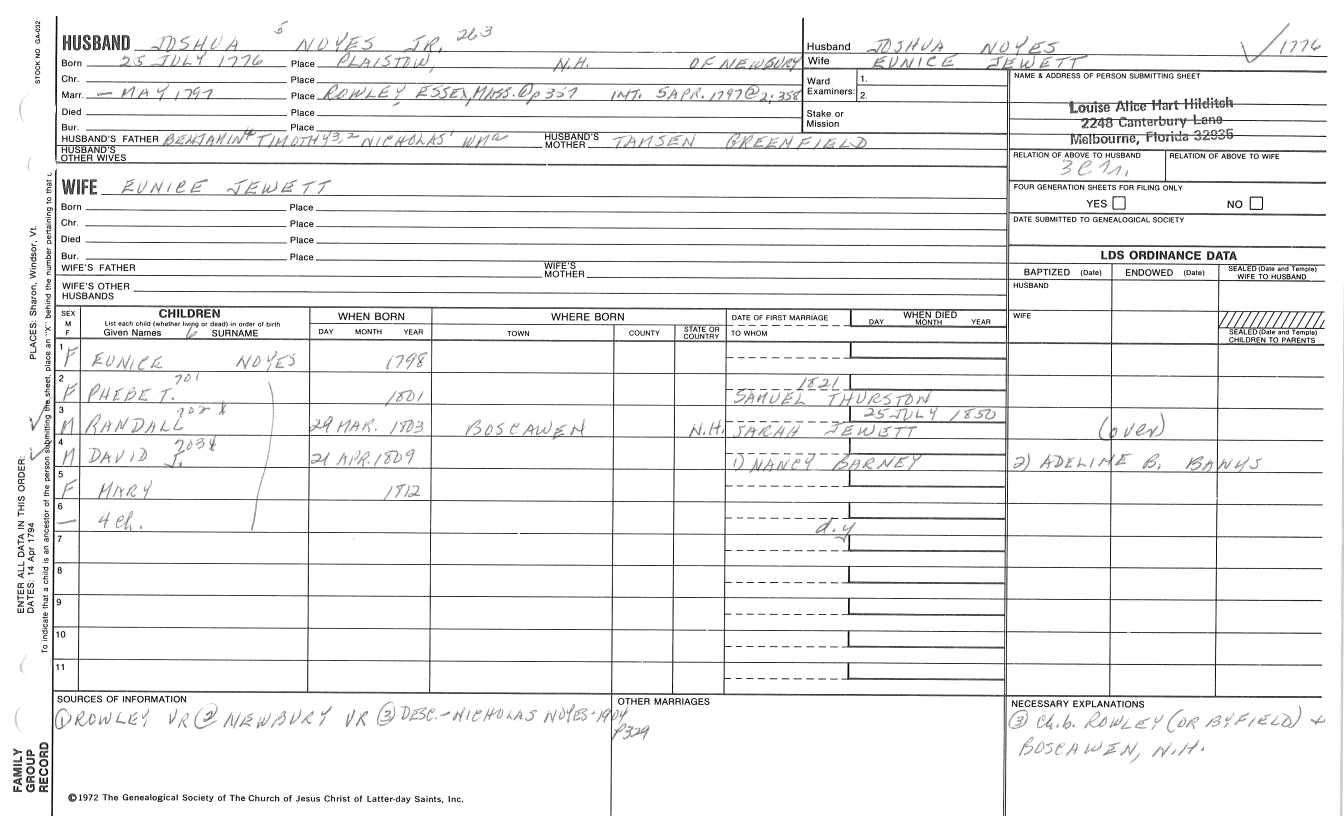 STOCK NO GA-032
HUSBAND JOSHUA 5 NOYES JR. 263
Born 25 JULY 1776 Place PLAISTOW, N.H. OF NEWBURY
Chr. Place
Marr. – MAY 1797 Place ROWLEY, ESSEX, MASS. ① p357 INT. 5 APR. 1797 @ 2:358
Died Place
Bur. Place
HUSBAND'S FATHER BENJAMIN 4 TIMOTHY 3,2 NICHOLAS 1 WM a HUSBAND'S MOTHER TAMSEN GREENFIELD
HUSBAND'S OTHER WIVES
Husband JOSHUA NOYES 1776
Wife EUNICE JEWETT
Ward Examiners: 1. 2.
Stake or Mission
NAME & ADDRESS OF PERSON SUBMITTING SHEET
Louise Alice Hart Hilditch
2248 Canterbury Lane
Melbourne, Florida 32935
RELATION OF ABOVE TO HUSBAND RELATION OF ABOVE TO WIFE
FOUR GENERATION SHEETS FOR FILING ONLY
YES NO
DATE SUBMITTED TO GENEALOGICAL SOCIETY
WIFE EUNICE JEWETT
Born Place
Chr. Place
Died Place
Bur. Place
WIFE'S FATHER WIFE'S MOTHER
WIFE'S OTHER HUSBANDS
LDS ORDINANCE DATA
BAPTIZED (Date) ENDOWED (Date) SEALED (Date and Temple) WIFE TO HUSBAND
HUSBAND
WIFE
SEALED (Date and Temple) CHILDREN TO PARENTS
SEX M F CHILDREN WHEN BORN WHERE BORN DATE OF FIRST MARRIAGE WHEN DIED
List each child (whether living or dead) in order of birth
Given Names 6 SURNAME DAY MONTH YEAR TOWN COUNTY STATE OR COUNTRY TO WHOM DAY MONTH YEAR
1 F EUNICE NOYES 1798
2 F PHEBE T. 701 1801 1821 SAMUEL THURSTON
3 M RANDALL 702 29 MAR. 1803 BOSCAWEN N.H. SARAH JEWETT 25 JULY 1850 (over)
4 M DAVID J. 703 21 APR. 1809 1) NANCY BARNEY 2) ADELINE B.
5 F MARY 1812
6 – 4 ch. d.y
7
8
9
10
11
SOURCES OF INFORMATION
① ROWLEY VR ② NEWBURY VR ③ DESC.-NICHOLAS NOYES-1904
p329
OTHER MARRIAGES
NECESSARY EXPLANATIONS
③ Ch. b. ROWLEY (OR BYFIELD) +
BOSCAWEN, N.H.
©1972 The Genealogical Society of The Church of Jesus Christ of Latter-day Saints, Inc.
FAMILY GROUP RECORD
ENTER ALL DATA IN THIS ORDER:
DATES: 14 Apr 1794
PLACES: Sharon, Windsor, Vt.
To indicate that a child is an ancestor of the person submitting the sheet, place an "X" behind the number pertaining to that c